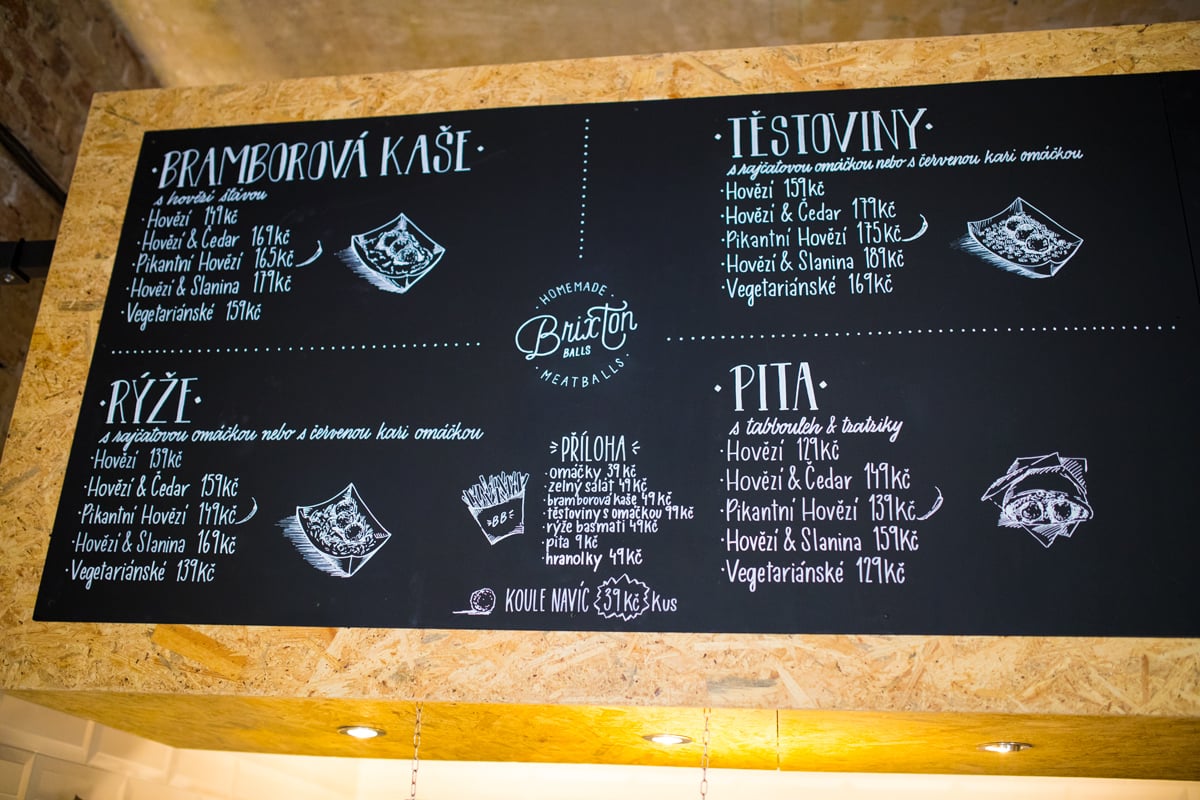 BRAMBOROVÁ KAŠE
s hovězí šťávou
Hovězí 149 kč
Hovězí & Čedar 169 kč
Pikantní Hovězí 165 kč
Hovězí & Slanina 179 kč
Vegetariánské 159 kč
TĚSTOVINY
s rajčatovou omáčkou nebo s červenou kari omáčkou
Hovězí 159 kč
Hovězí & Čedar 179 kč
Pikantní Hovězí 175 kč
Hovězí & Slanina 189 kč
Vegetariánské 169 kč
HOMEMADE
Brixton
BALLS
MEATBALLS
RÝŽE
s rajčatovou omáčkou nebo s červenou kari omáčkou
Hovězí 139 kč
Hovězí & Čedar 159 kč
Pikantní Hovězí 149 kč
Hovězí & Slanina 169 kč
Vegetariánské 139 kč
BB
PŘÍLOHA
omáčky 39 kč
zelný salát 49 kč
bramborová kaše 49 kč
těstoviny s omáčkou 99 kč
rýže basmati 49 kč
pita 9 kč
hranolky 49 kč
KOULE NAVÍC 39 kč Kus
PITA
s tabbouleh & tzatziky
Hovězí 129 kč
Hovězí & Čedar 149 kč
Pikantní Hovězí 139 kč
Hovězí & Slanina 159 kč
Vegetariánské 129 kč